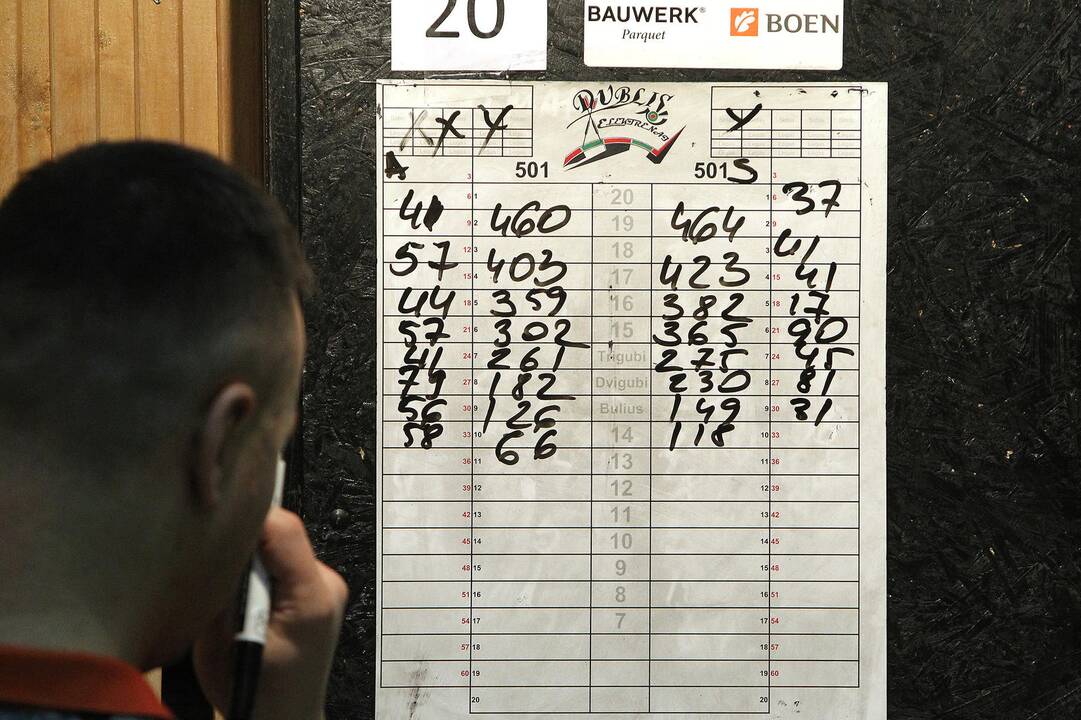 20
BAUWERK® BOEN
Parquet
DUBLIS
ELEKTRĖNAI
X X X X
A 501 501 S
3 3
6 1 20 1 6 37
41 9 2 460 19 464 2 9
12 3 18 3 41
57 15 4 403 17 423 4 15 41
44 18 5 359 16 382 5 18 17
57 21 6 302 15 365 6 21 90
41 24 7 261 Trigubi 275 7 24 45
79 27 8 182 Dvigubi 230 8 27 81
56 30 9 126 Bulius 149 9 30 31
58 33 10 66 14 118 10 33
36 11 13 11 36
39 12 12 12 39
42 13 11 13 42
45 14 10 14 45
48 15 9 15 48
51 16 8 16 51
54 17 7 17 54
57 18 18 57
60 19 19 60
20 20